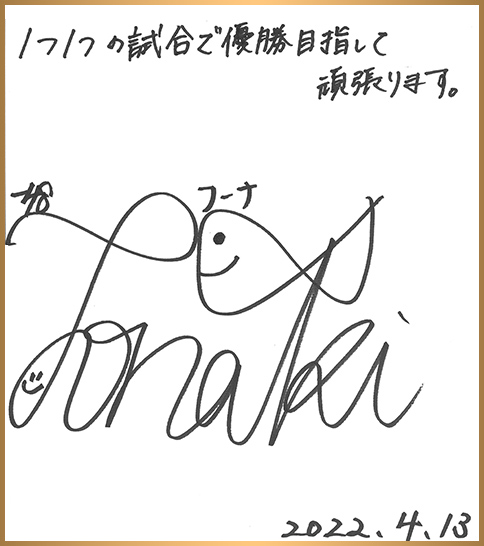 1つ1つの試合で優勝目指して
頑張ります。
#8 フーナ
Tonaki
2022.4.13